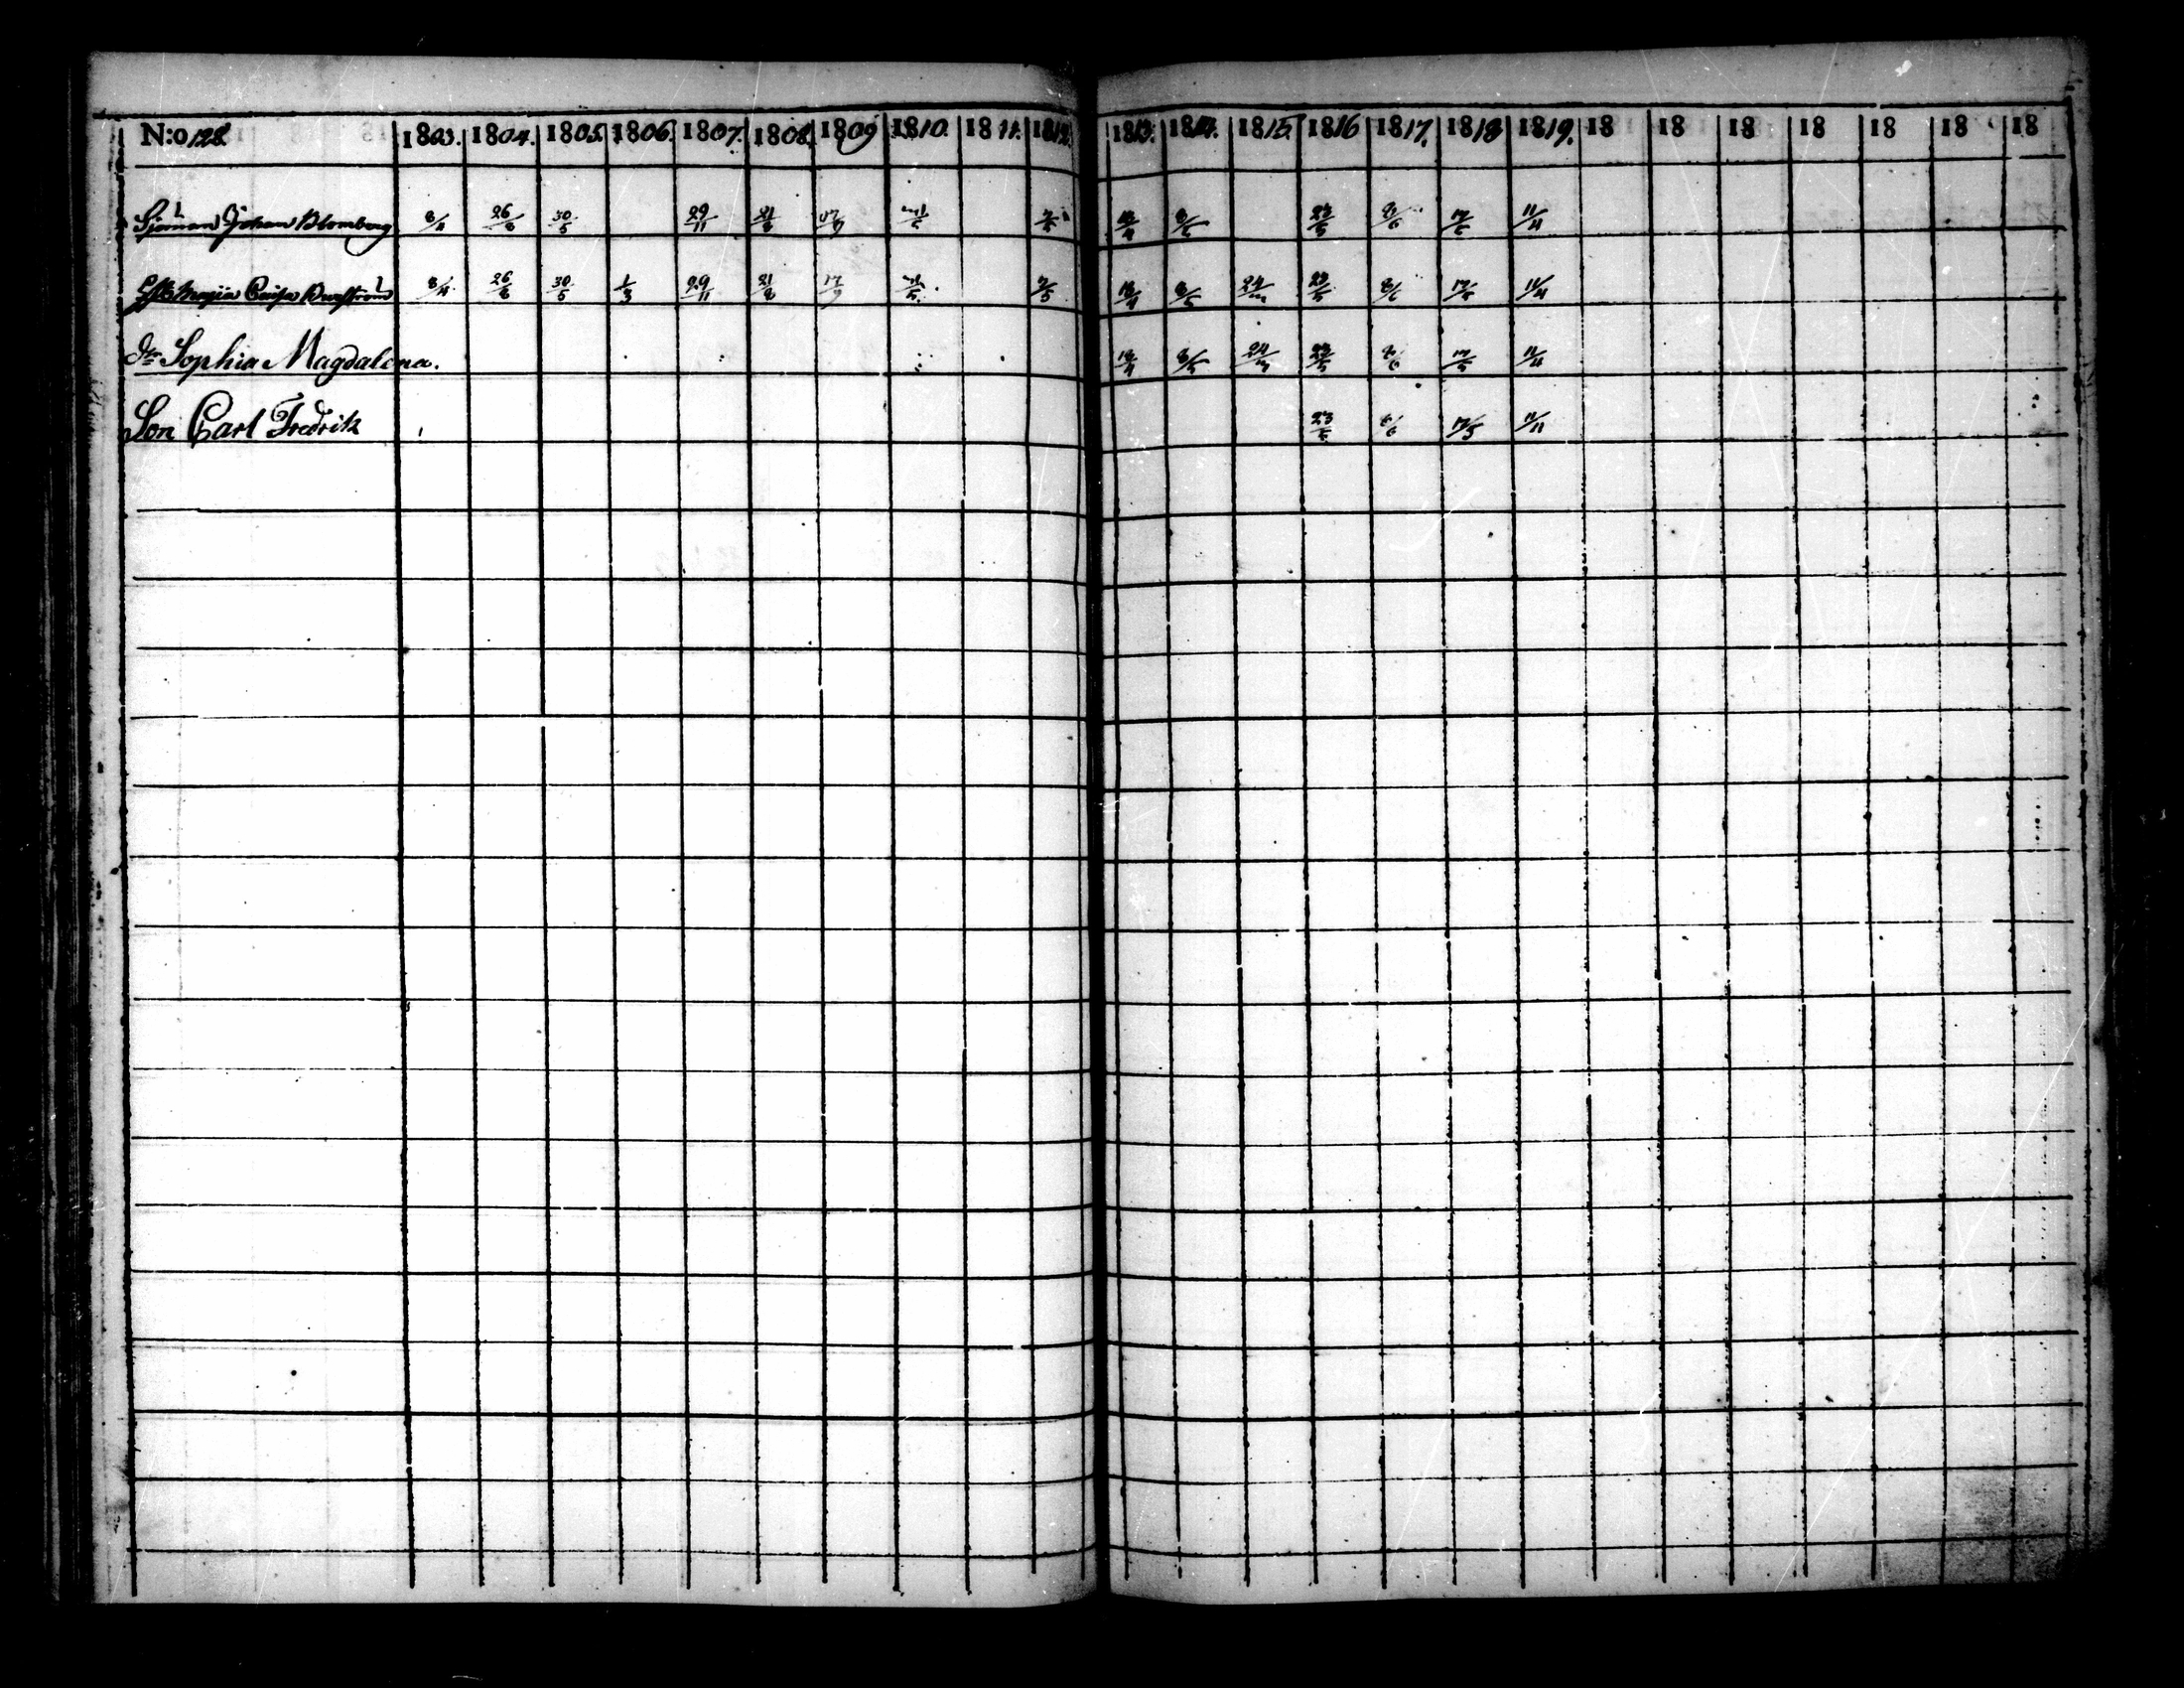 N:o 128 1803. 1804. 1805. 1806. 1807. 1808. 1809 1810. 1811. 1812. 1813. 1814. 1815. 1816 1817. 1818 1819. 18 18 18 18 18 18 18
Sjöman Johan Blomberg 8/4 26/8 30/5 29/11 21/8 17/9 7/5 18/4 8/5 23/5 8/6 17/5 11/4
Maja Caisa 8/4 26/8 30/5 1/3 29/11 21/8 17/9 7/5 18/4 8/5 24/3 23/5 8/6 17/5 11/4
dr Sophia Magdalena. 18/4 8/5 24/3 23/5 8/6 17/5 11/4
Son Carl Fredrik 23/5 8/6 17/5 11/11